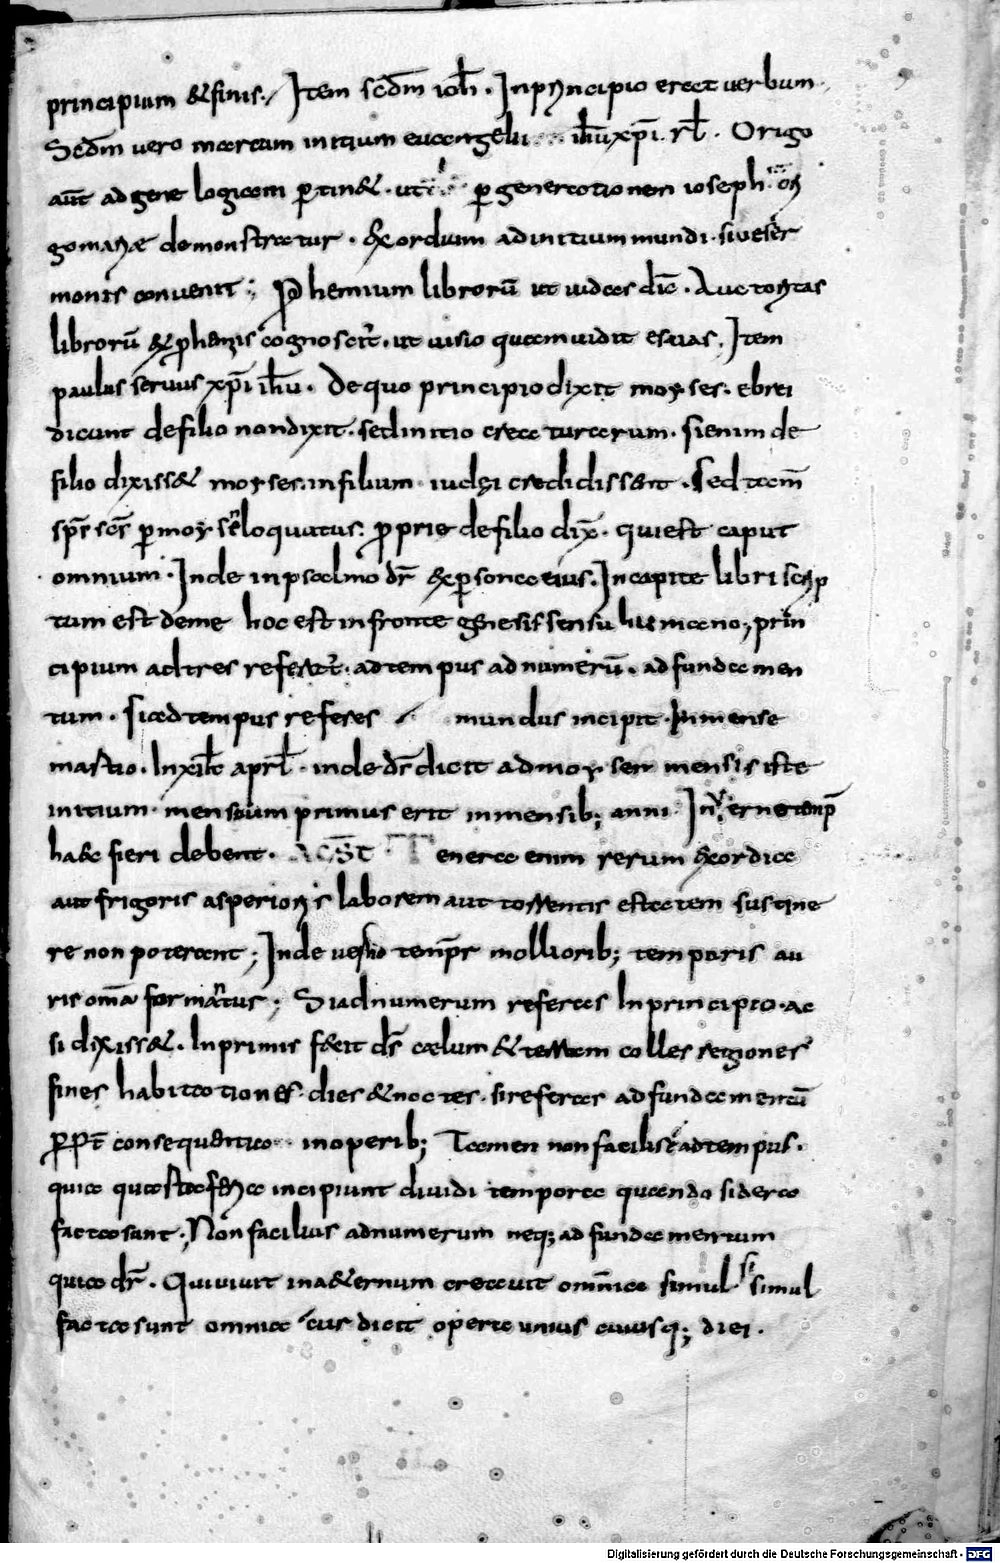 principium & finis. Item scdm ioh̄. In principio erat uerbum.
Scdm uero marcum initium euangelii ih̄u xp̄i. rl̄. Origo
aut̄ ad genelogiam p̄tin&. ut p̄ generationem ioseph
demonstratur. Exordium ad initium mundi.
conuenit; Phemium librorū ut uideas dic̄. Auctoritas
librorū & cognoscit̄. ut uisio quam uidit esaias. Item
paulus seruus xp̄i ih̄u. De quo principio dixit moyses. ebrei
dicunt de filio non dixit. sed initio creaturarum. si enim de
filio dixiss& moyses. in filium iudęi credidissent. Sed tam̄
sp̄s sc̄s p̄ moysen loquutus. proprie de filio dix̄. qui est caput
omnium. Inde in psalmo dr̄ ex persona eius. In capite libri scrip
tum est de me hoc est in fronte genesis sensu humano; prin
cipium ad tres refert̄. ad tempus ad numerū. ad fundamen
tum. Si ad tempus referes mundus incipit. In mense
martio. In xii kl̄ aprl̄. inde dr̄ dicit ad moysen mensis iste
initium mensium primus erit in mensib; anni. In uerno temp̄
haec fieri debent. Tenera enim rerum exordia
aut frigoris asperioris laborem aut torrentis estatem sustine
re non poterant; Inde uerno temp̄r mollioribus; temporis au
ris om̄a formatus; Si ad numerum referas In principio. ac
si dixiss&. In primis fecit ds̄ cælum & terram colles regiones
fines habitationes. dies & noctes. si referas ad fundamentū
consequentia in operib; Tamen non facilis ad tempus.
quia quasi incipiunt diuidi tempora quando sidera
facta sunt. Non facilius ad numerum neq; ad fundamentum
quia dr̄. Qui uiuit in aeternum creauit omnia simul si simul
facta sunt omnia cur dicit opera unius cuiusq; diei.
Digitalisierung gefördert durch die Deutsche Forschungsgemeinschaft - DFG